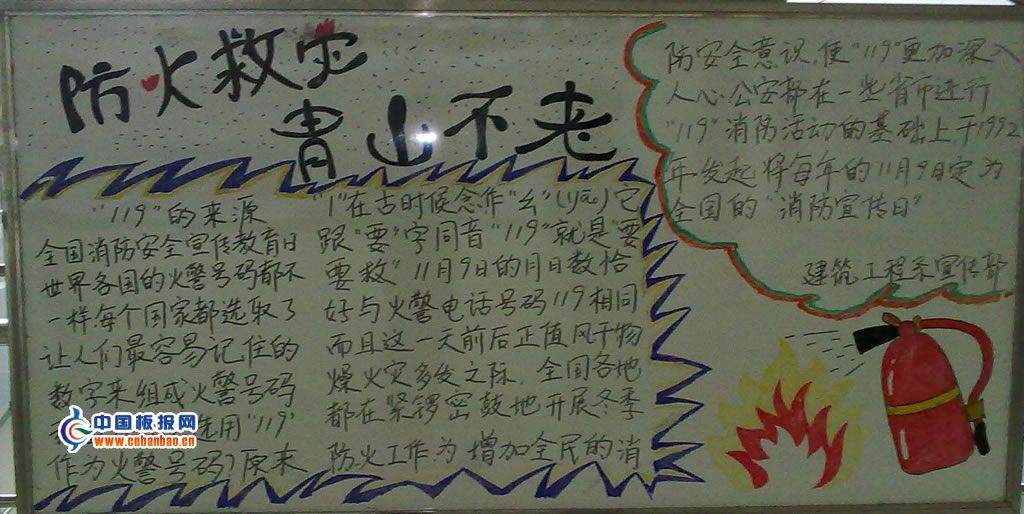 防火救灾
青山不老
"119"的来源
全国消防安全宣传教育日
世界各国的火警号码都不
一样,每个国家都选取了
让人们最容易记住的
数字来组成火警号码
选用"119"
作为火警号码?原来
"1"在古时候念作"幺"(yāo)它
跟"要"字同音"119"就是"要
要救"11月9日的月日数恰
好与火警电话号码119相同
而且这一天前后正值风干物
燥火灾多发之际.全国各地
都在紧锣密鼓地开展冬季
防火工作为增加全民的消
防安全意识,使"119"更加深入
人心.公安部在一些省市进行
"119"消防活动的基础上于1992
年发起将每年的11月9日定为
全国的"消防宣传日"
建筑工程系宣传部
中国板报网
www.cnbanbao.cn